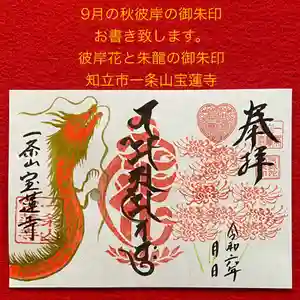 9月の秋彼岸の御朱印
お書き致します。
彼岸花と朱龍の御朱印
知立市一条山宝蓮寺
奉拝
令和六年
月
日
一条山 宝蓮寺